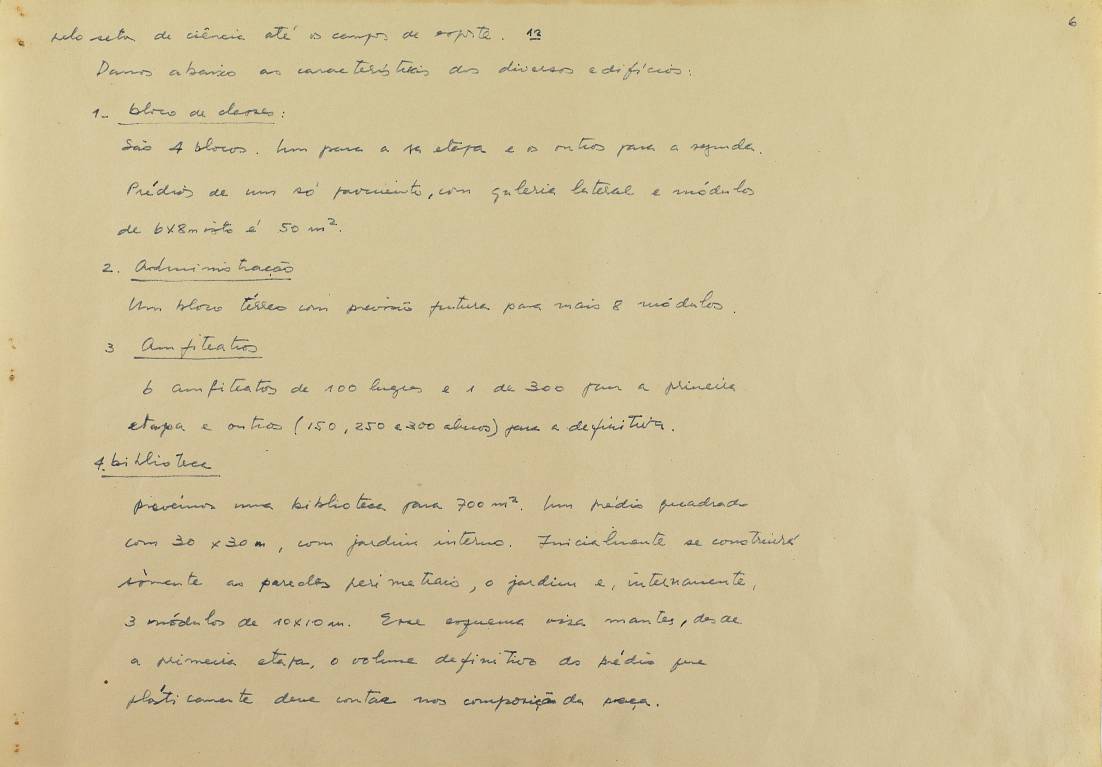 6
pelo setor de ciência até os campos de esporte. 13
Damos abaixo as características dos diversos edifícios:
1- bloco de classes:
São 4 blocos. Um para a 1a etapa e os outros para a segunda.
Prédios de um só pavimento, com galeria lateral e módulos
de 6x8m isto é 50 m².
2. Administração
Um bloco térreo com previsão futura para mais 8 módulos.
3 Anfiteatros
6 anfiteatos de 100 lugares e 1 de 300 para a primeira
etapa e outros (150, 250 e 300 alunos) para a definitiva.
4. biblioteca
prevêimos uma biblioteca para 700 m². Um prédio quadrado
com 30 x 30 m, com jardim interno. Inicialmente se construirá
sòmente as paredes perimetrais, o jardim e, internamente,
3 módulos de 10x10 m. Esse esquema visa manter, desde
a primeira etapa, o volume definitivo do prédio que
plàsticamente deve contar nos composição da praça.